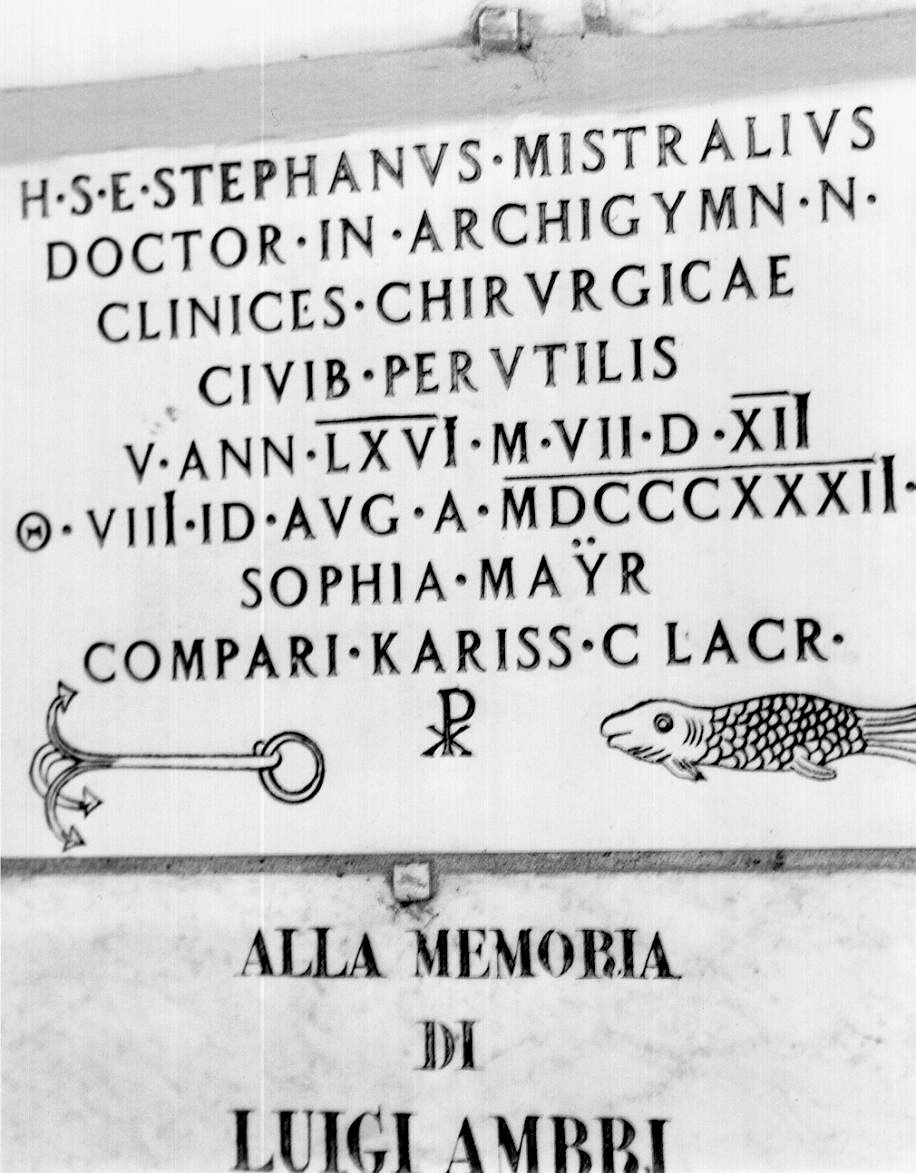 H·S·E·STEPHANVS·MISTRALIVS
DOCTOR·IN·ARCHIGYMN·N·
CLINICES·CHIRVRGICAE
CIVIB·PERVTILIS
V·ANN·LXVI·M·VII·D·XII
Θ·VIII·ID·AVG·A·MDCCCXXXII·
SOPHIA·MAŸR
COMPARI·KARISS·C LACR·
☧
ALLA MEMORIA
DI
LUIGI AMBRI